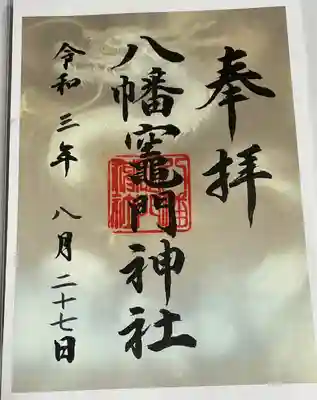 奉拝
八幡竈門神社
令和三年 八月二十七日